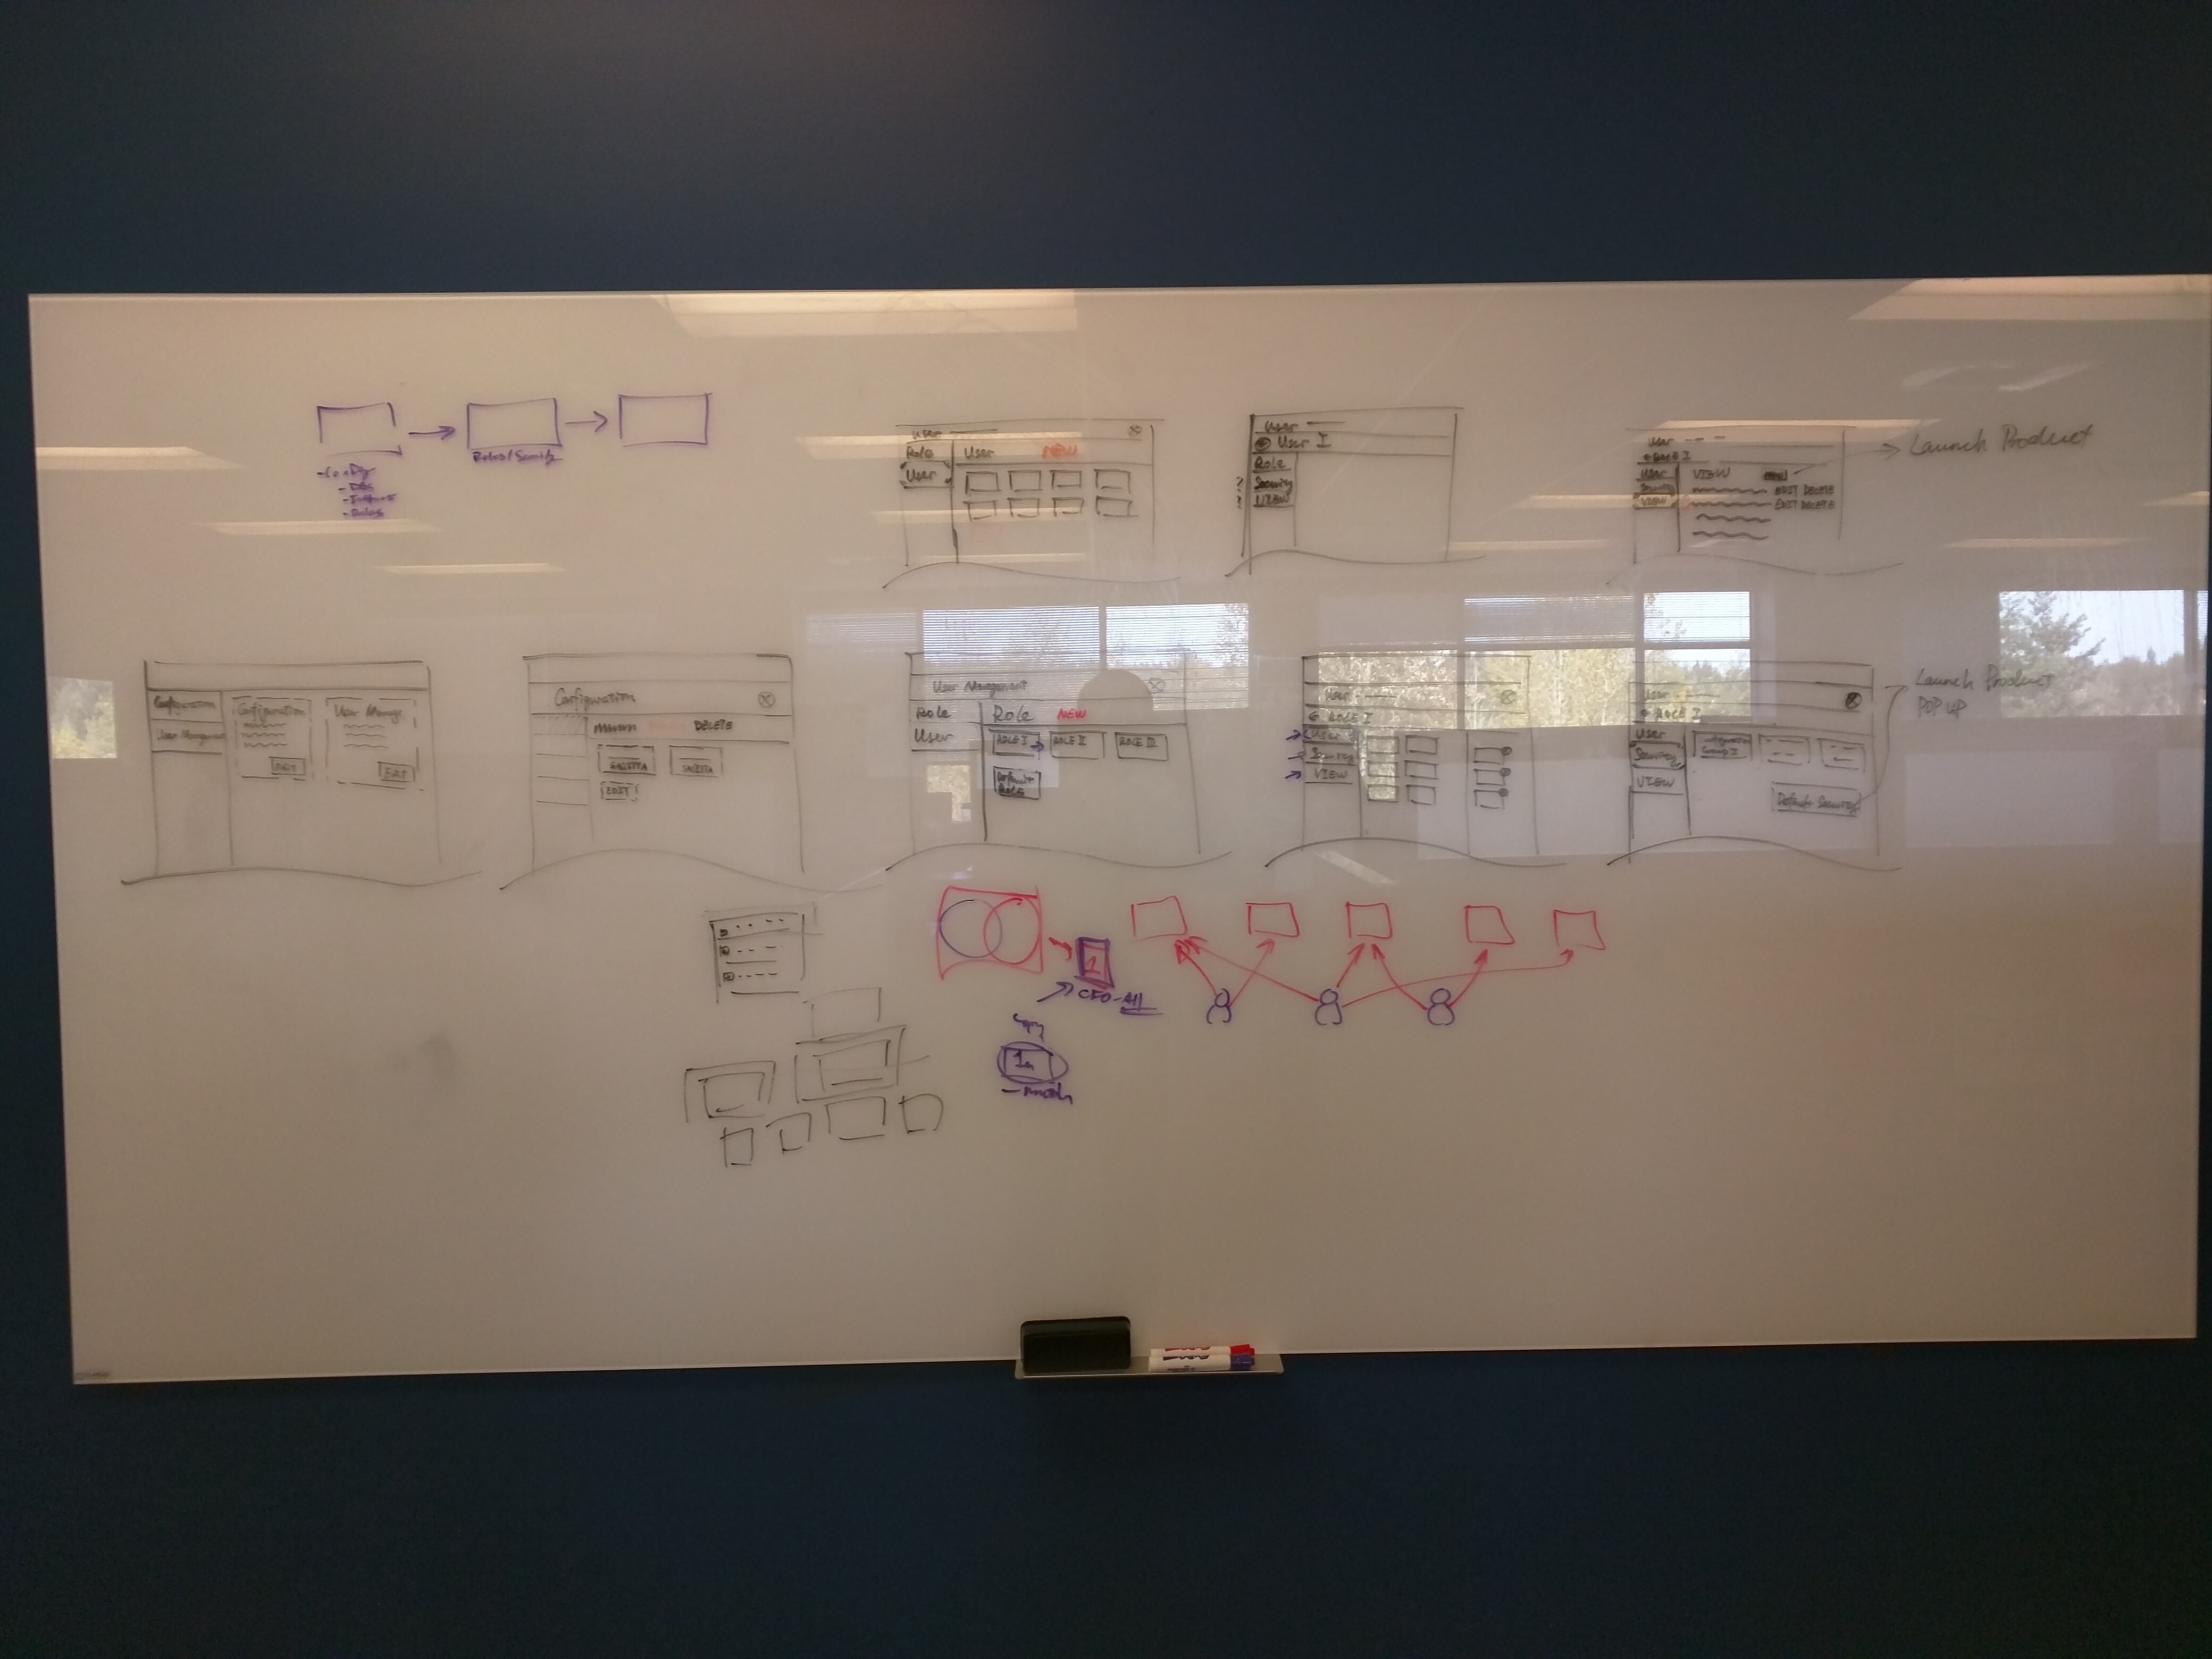 Roles/Security
- Rules
User
Role
User
User
NEW
User
User I
Role
Security
VIEW
User
ROLE I
User
Security
VIEW
VIEW
EDIT DELETE
EDIT DELETE
Launch Product
Configuration
User Management
Configuration
EDIT
User Manage
EDIT
Configuration
DELETE
SAGITTA
SAGITTA
EDIT
User Management
Role
User
Role
NEW
ROLE I
ROLE II
ROLE III
Default Role
User
ROLE I
User
Security
VIEW
User
ROLE I
User
Security
VIEW
Group I
Default Security
Launch Product
POP UP
1
CFO-All